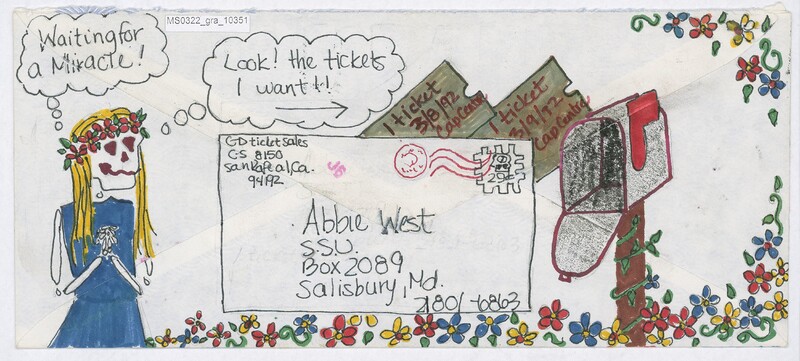 MS0322_gra_10351
Waiting for
a Miracle!
Look! the tickets
I want!!
1 ticket
3/8/92
Cap Centre
1 ticket
3/9/92
Cap Centre
GD ticket sales
CS 8150
San Rafeal, Ca.
94912
29
Abbie West
S.S.U.
Box 2089
Salisbury, Md.
21801-6863